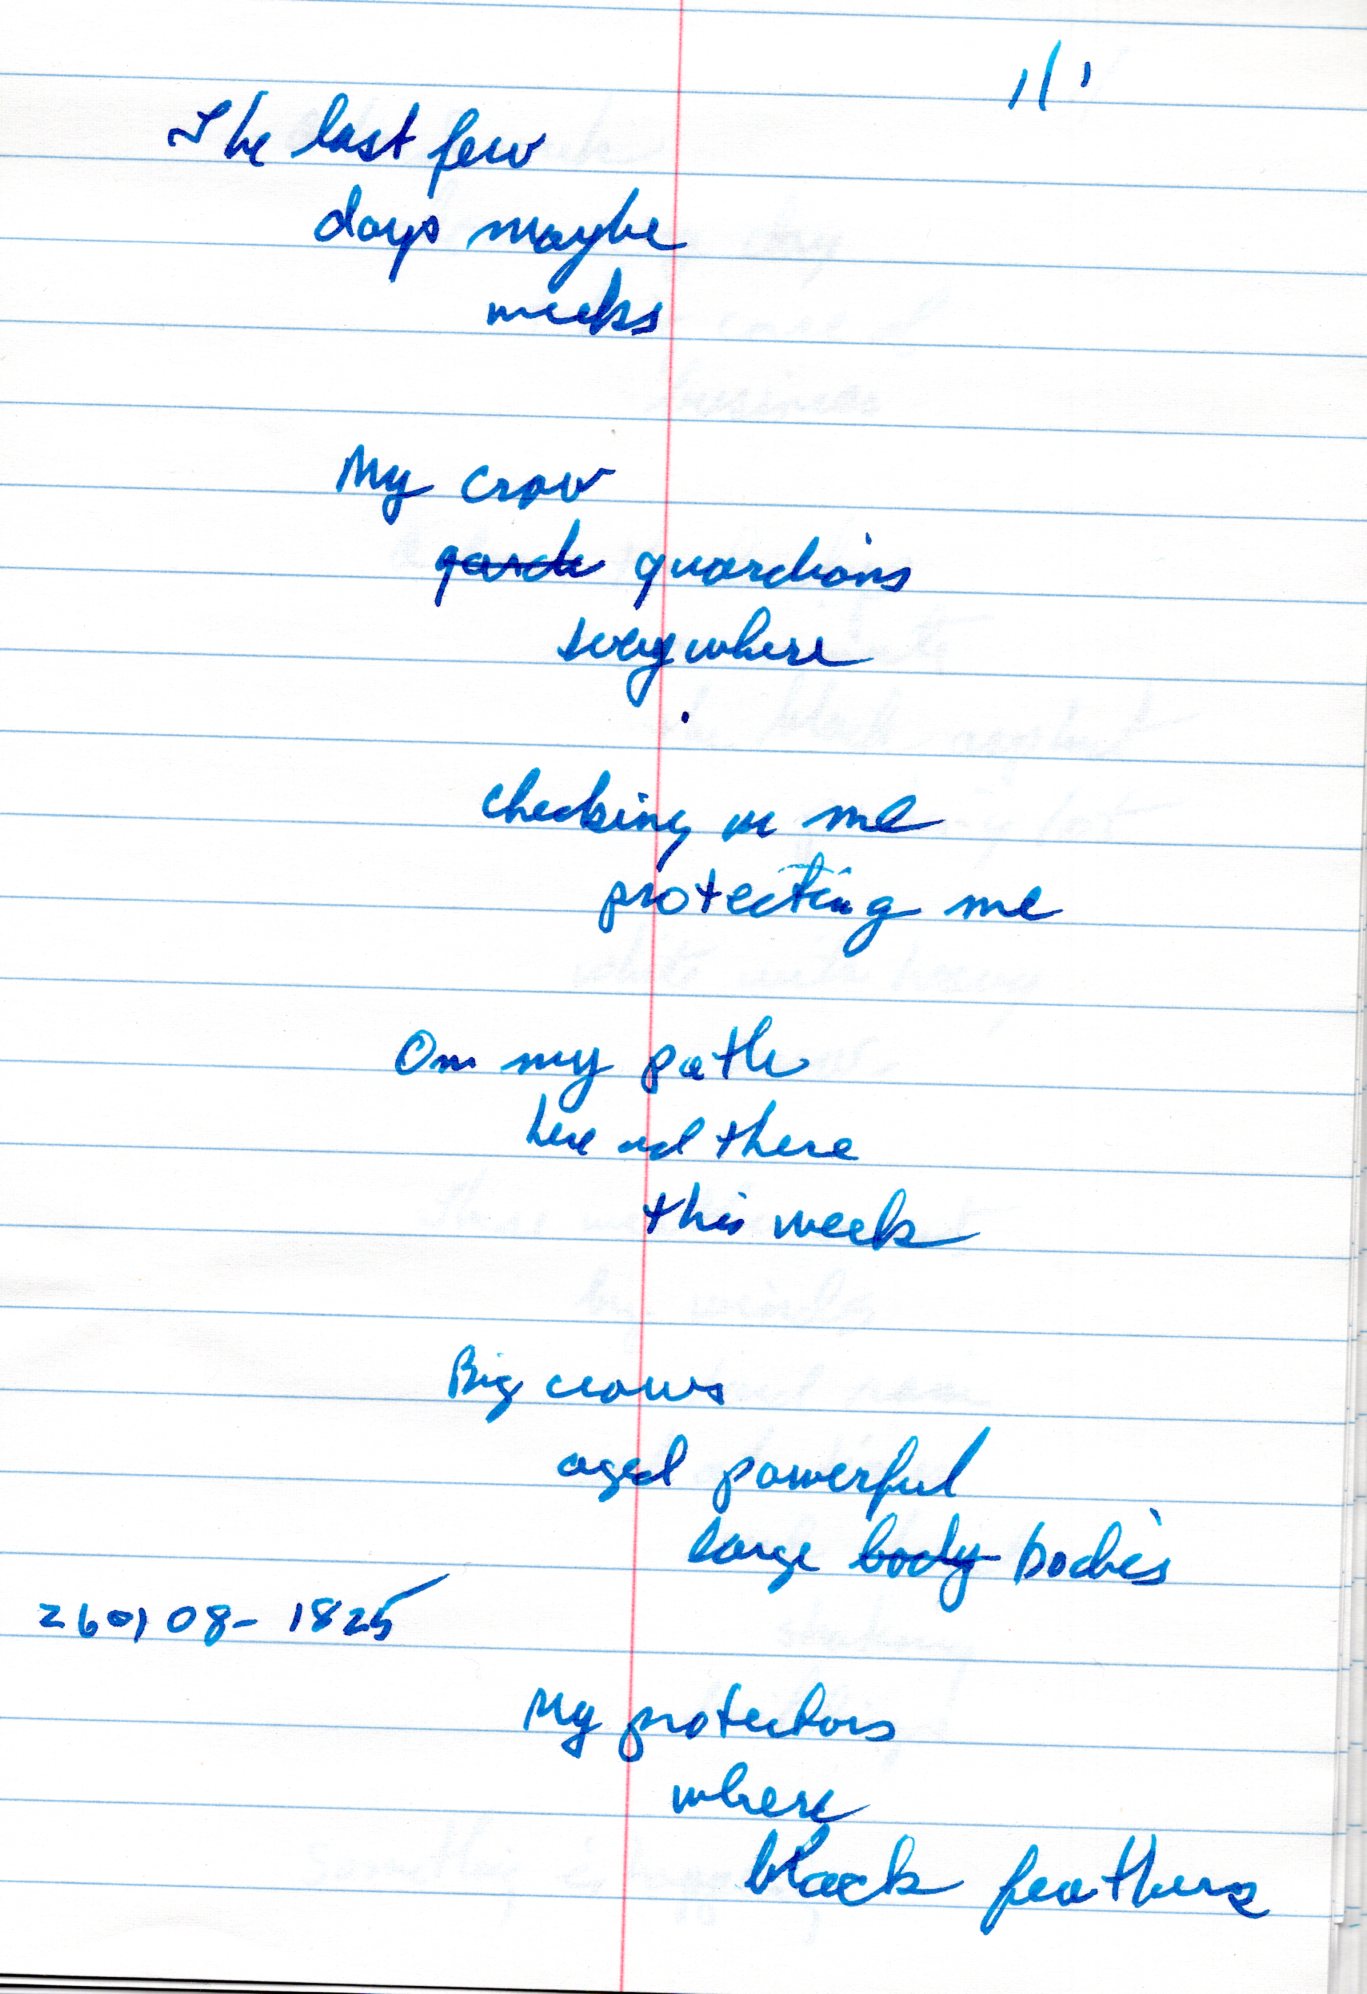 1/1
The last few
days maybe
weeks
My crow
garde guardians
everywhere
checking on me
protecting me
On my path
here and there
this week
Big crows
aged powerful
large body bodies
260108-1825
My protectors
where
black feathers